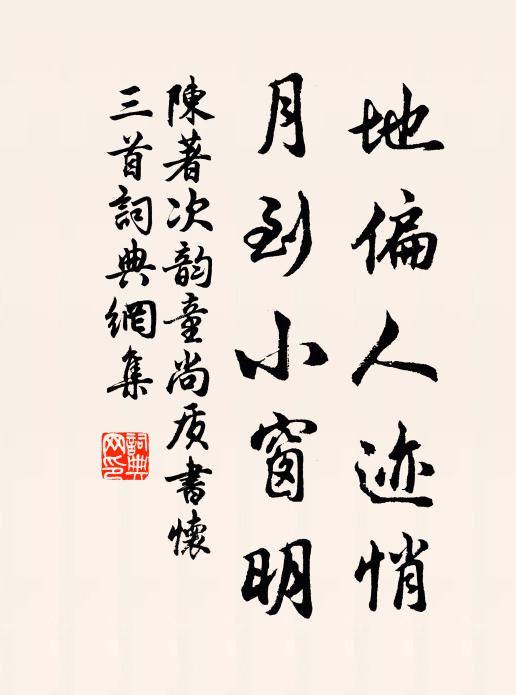 地偏人迹悄
月到小窗明
陳著次韵童尚质書懷
三首詞典網集
詞典网印